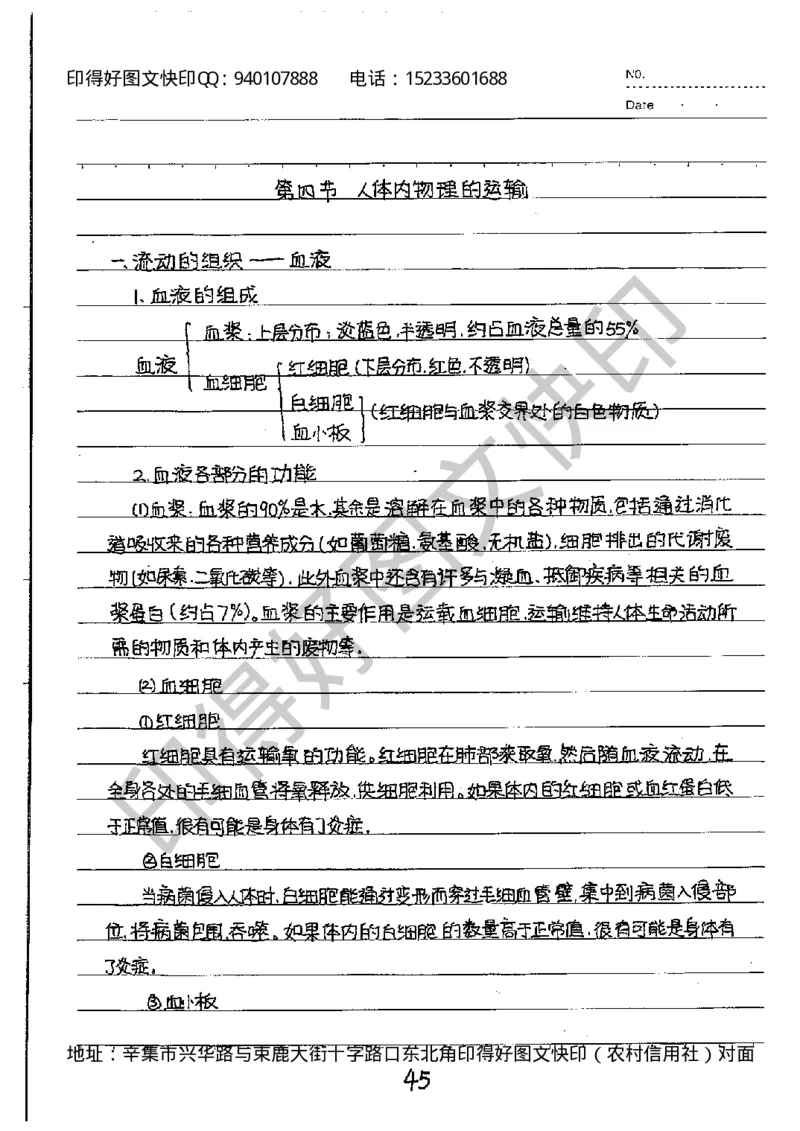 印得好图文快印QQ：940107888 电话：15233601688
NO.
Date
第四节 人体内物理的运输
一、流动的组织——血液
1、血液的组成
血浆：上层分布；淡蓝色.半透明.约占血液总量的55%
血液
血细胞
红细胞(下层分布.红色.不透明)
白细胞
血小板
(红细胞与血浆交界处的白色物质)
2.血液各部分的功能
(1)血浆：血浆的90%是水,其余是溶解在血浆中的各种物质,包括通过消化
道吸收来的各种营养成分(如葡萄糖.氨基酸.无机盐),细胞排出的代谢废
物(如尿素.二氧化碳等),此外血浆中还含有许多与凝血、抵御疾病等相关的血
浆蛋白(约占7%)。血浆的主要作用是运载血细胞,运输维持人体生命活动所
需的物质和体内产生的废物等。
(2)血细胞
①红细胞
红细胞具有运输氧的功能。红细胞在肺部来取氧,然后随血液流动,在
全身各处的毛细血管将氧释放,供细胞利用。如果体内的红细胞或血红蛋白低
于正常值,很有可能是身体有了炎症。
②白细胞
当病菌侵入人体时,白细胞能通过变形而穿过毛细血管壁,集中到病菌入侵部
位,将病菌包围,吞噬。如果体内的白细胞的数量高于正常值,很有可能是身体有
了炎症。
③血小板
地址：辛集市兴华路与束鹿大街十字路口东北角印得好图文快印（农村信用社）对面
45
印得好图文快印